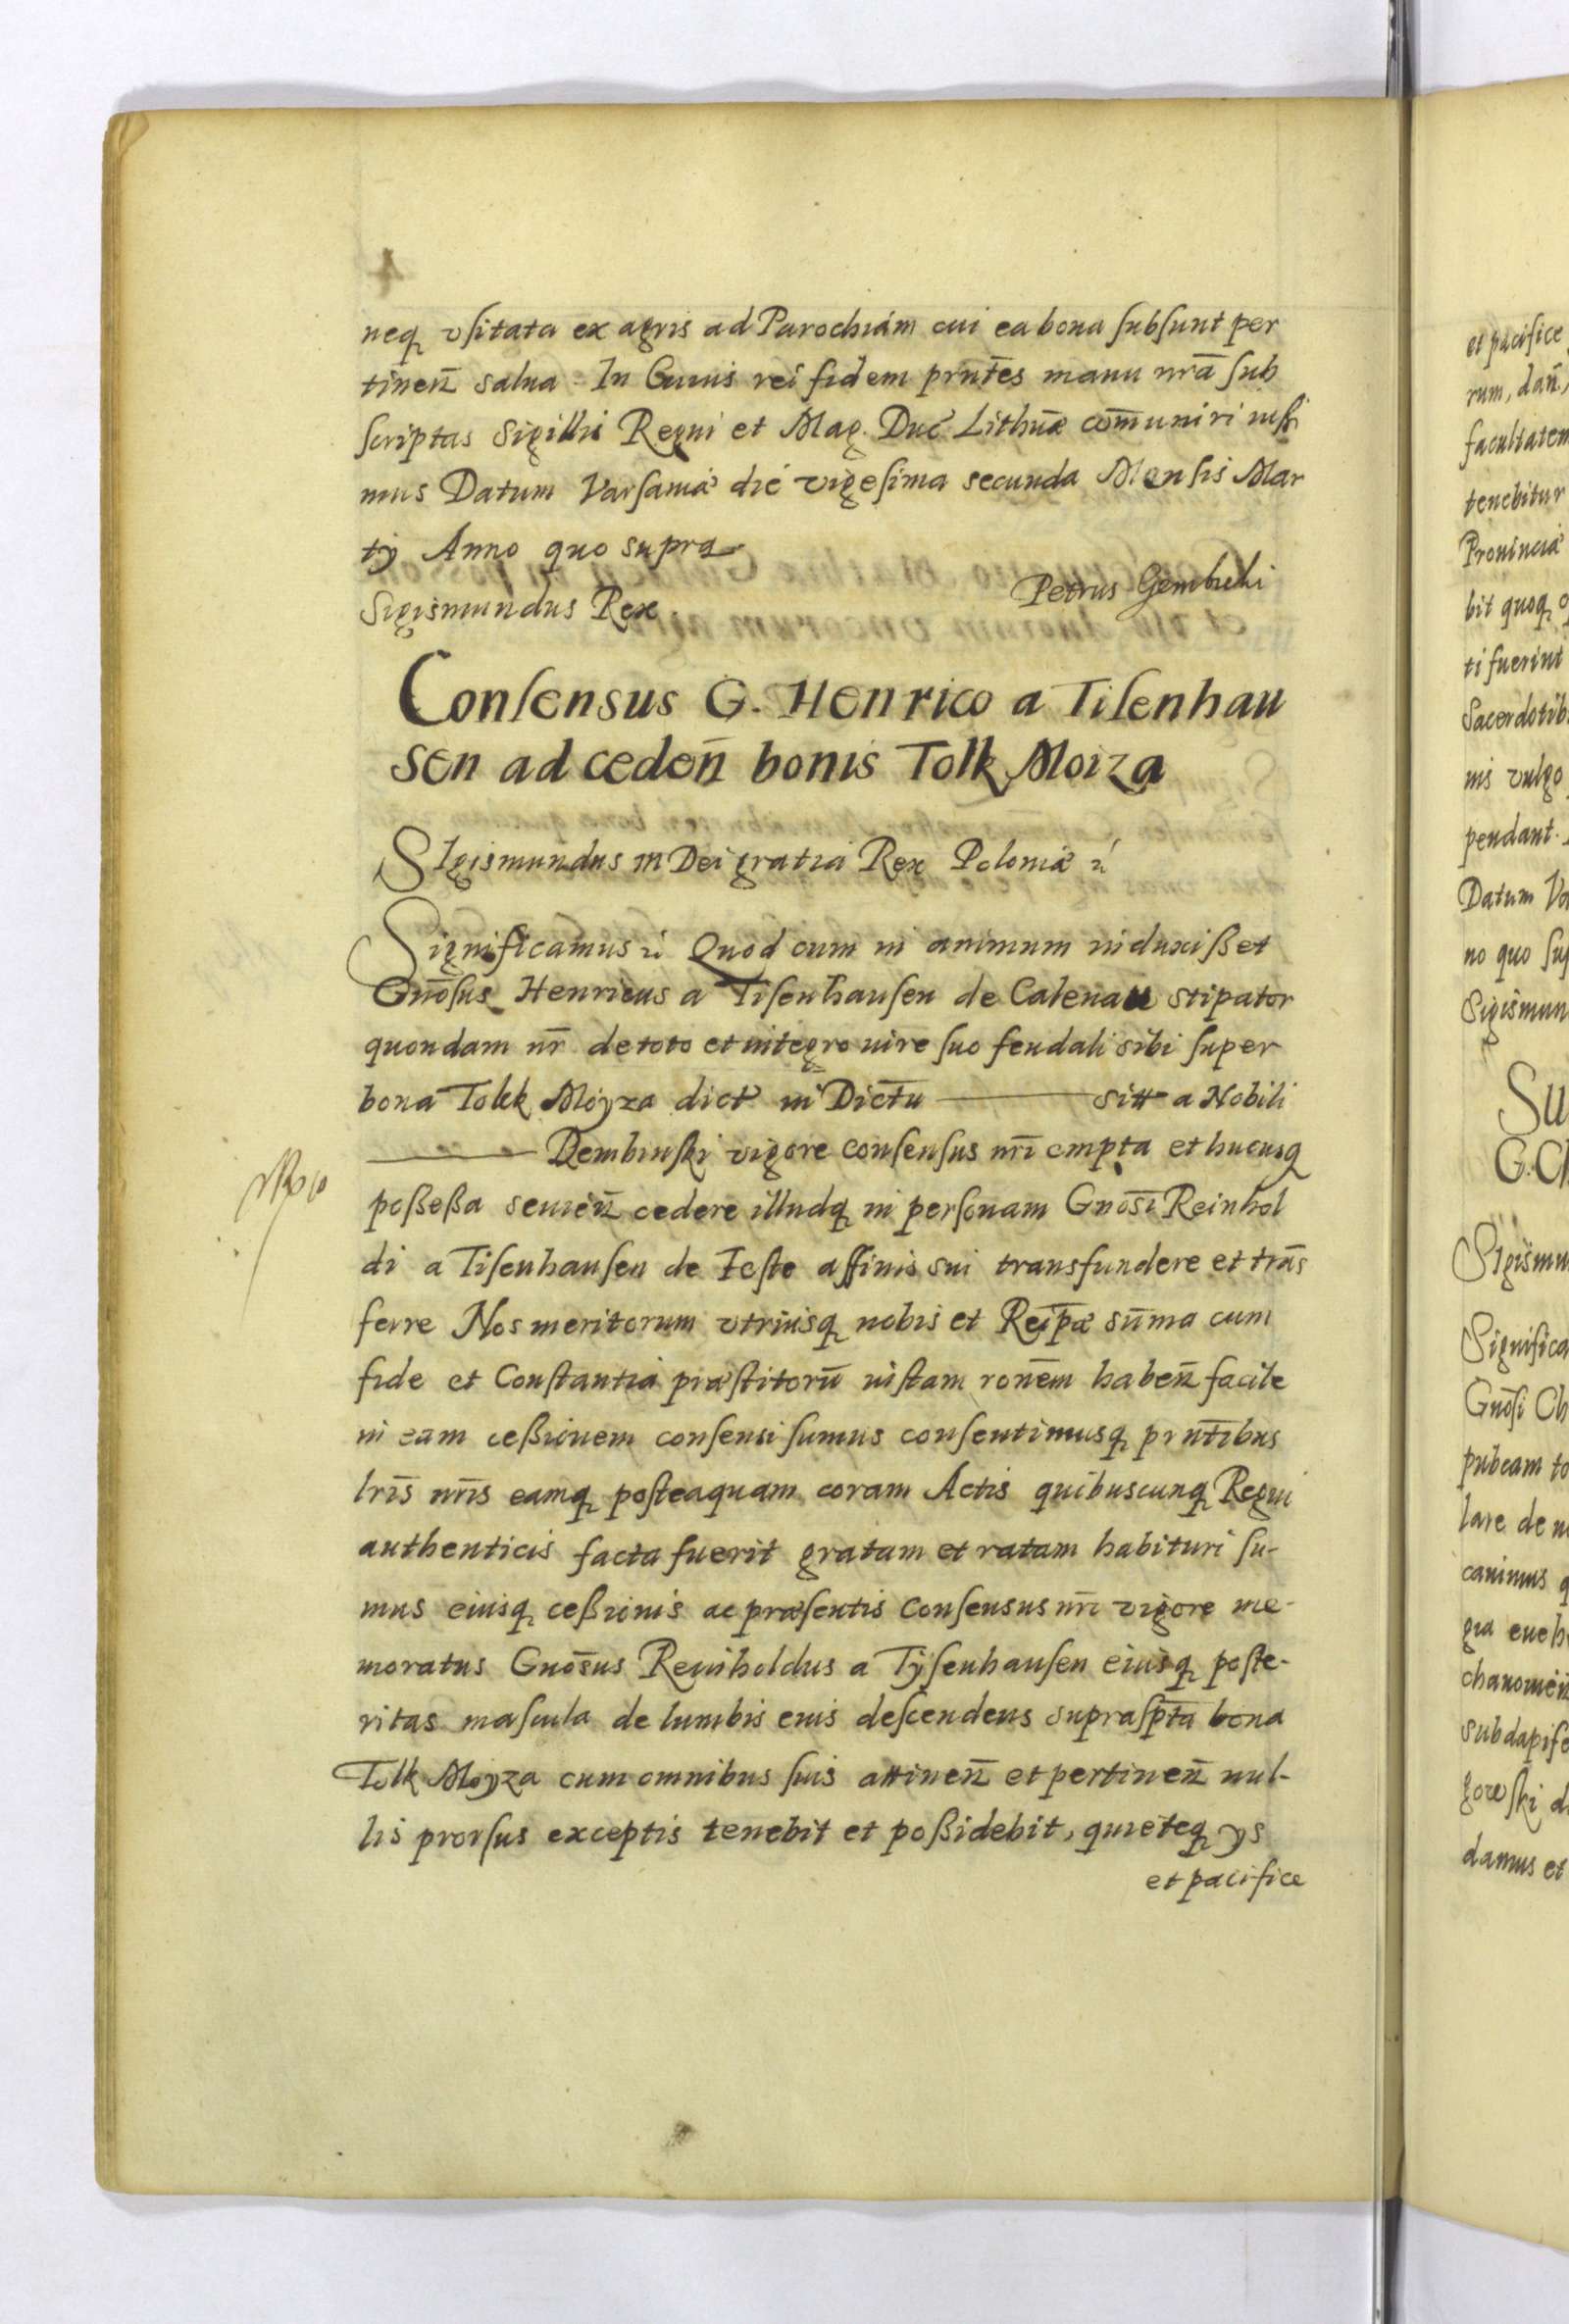 neq usitata ex agris ad Parochiam cui ea bona subsunt per
tineñ salva. In Cuius rei fidem prñtes manu nrã sub
scriptas Sigillis Regni et Mag. Duc Lithuæ com̃uniri iussi
mus Datum Varsaviæ die vigesima secunda Mensis Mar
tÿ Anno quo supra
Sigismundus Rex Petrus Gembicki
Consensus G. Henrico a Tisenhau
sen ad cedeñ bonis Tolk Moiza
SIgismundus III Dei gratia Rex Poloniæ
Significamus Quod cum in animum induxisset
Gnõsus Henricus a Tisenhausen de Calenau stipator
quondam nr̃ de toto et integro iure suo feudali sibi super
bona Tolck Moyza dict in Dictu ——— sitt a Nobili
——— Dembinski vigore consensus nrĩ empta et hucusq
possessa cedere illudq in personam Gnõsi Reinhol
di a Tisenhausen de Feste affinis sui transfundere et trãs
ferre Nos meritorum utriusq nobis et Reipæ sum̃a cum
fide et Constantia præstitorũ iustam ronẽm habeñ facile
in eam cessionem consensi sumus consentimusq prñtibus
lrĩs nrĩs eamq posteaquam coram Actis quibuscunq Regni
authenticis facta fuerit gratam et ratam habituri su-
mus eiusq cessionis ac præsentis Consensus nrĩ vigore me-
moratus Gnõsus Reinholdus a Tÿsenhausen eiusq poste-
ritas mascula de lumbis eius descendens suprasp̃ta bona
Tolk Moyza cum omnibus suis attineñ et pertineñ nul-
lis prorsus exceptis tenebit et possidebit, quieteq ÿs
et pacifice
et pacifice
rum, dañ,
facultatem
tenebitur
Provinciæ
bit quoq
ti fuerint
Sacerdotib
nis vulgo
pendant.
Datum Va
no quo sup
Sigismun
Su
G. Ch
SIgismu
Significa
Gnõsi Ch
pubcam to
lare de n
canimus q
gia eueh
subdapife
damus et